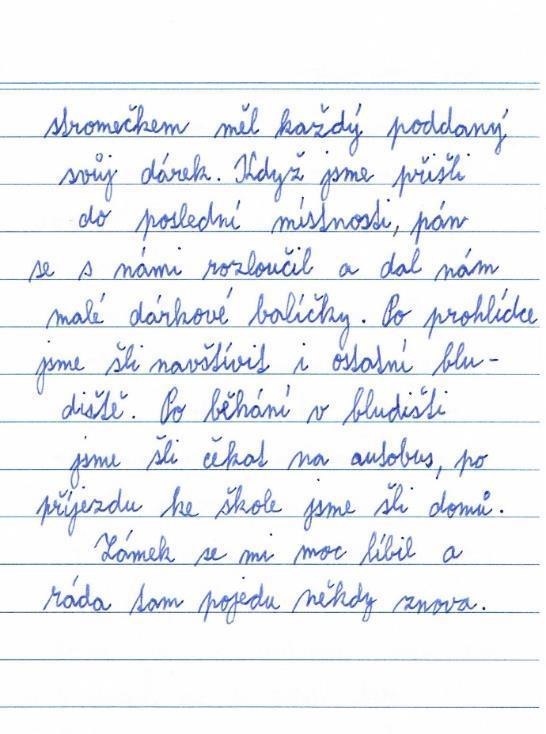 stromečkem měl každý poddaný
svůj dárek. Když jsme přišli
do poslední místnosti, pán
se s námi rozloučil a dal nám
malé dárkové balíčky. Po prohlídce
jsme šli navštívit i ostatní blu-
diště. Po běhání v bludišti
jsme šli čekat na autobus, po
příjezdu ke škole jsme šli domů.
Zámek se mi moc líbil a
ráda tam pojedu někdy znova.